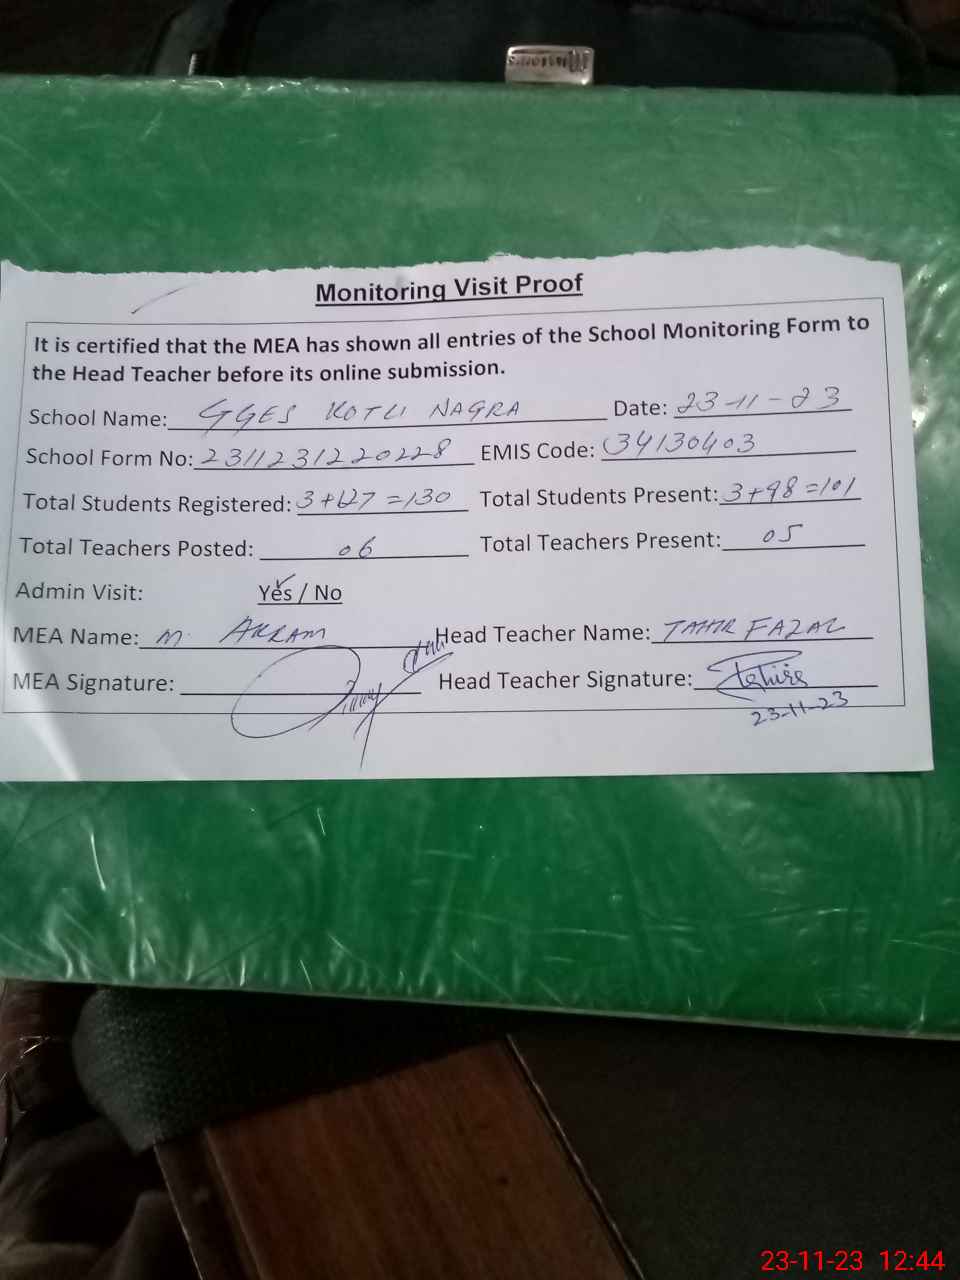 Monitoring Visit Proof
It is certified that the MEA has shown all entries of the School Monitoring Form to
the Head Teacher before its online submission.
School Name: GGES KOTLI NAGRA Date: 23-11-23
School Form No: 2311231220228 EMIS Code: 34130403
Total Students Registered: 3+127=130 Total Students Present: 3+98=101
Total Teachers Posted: 06 Total Teachers Present: 05
Admin Visit: Yes / No
MEA Name: M. AKRAM Head Teacher Name: TAHIR FAZAL
MEA Signature: Head Teacher Signature: Tahira
23-11-23
23-11-23 12:44